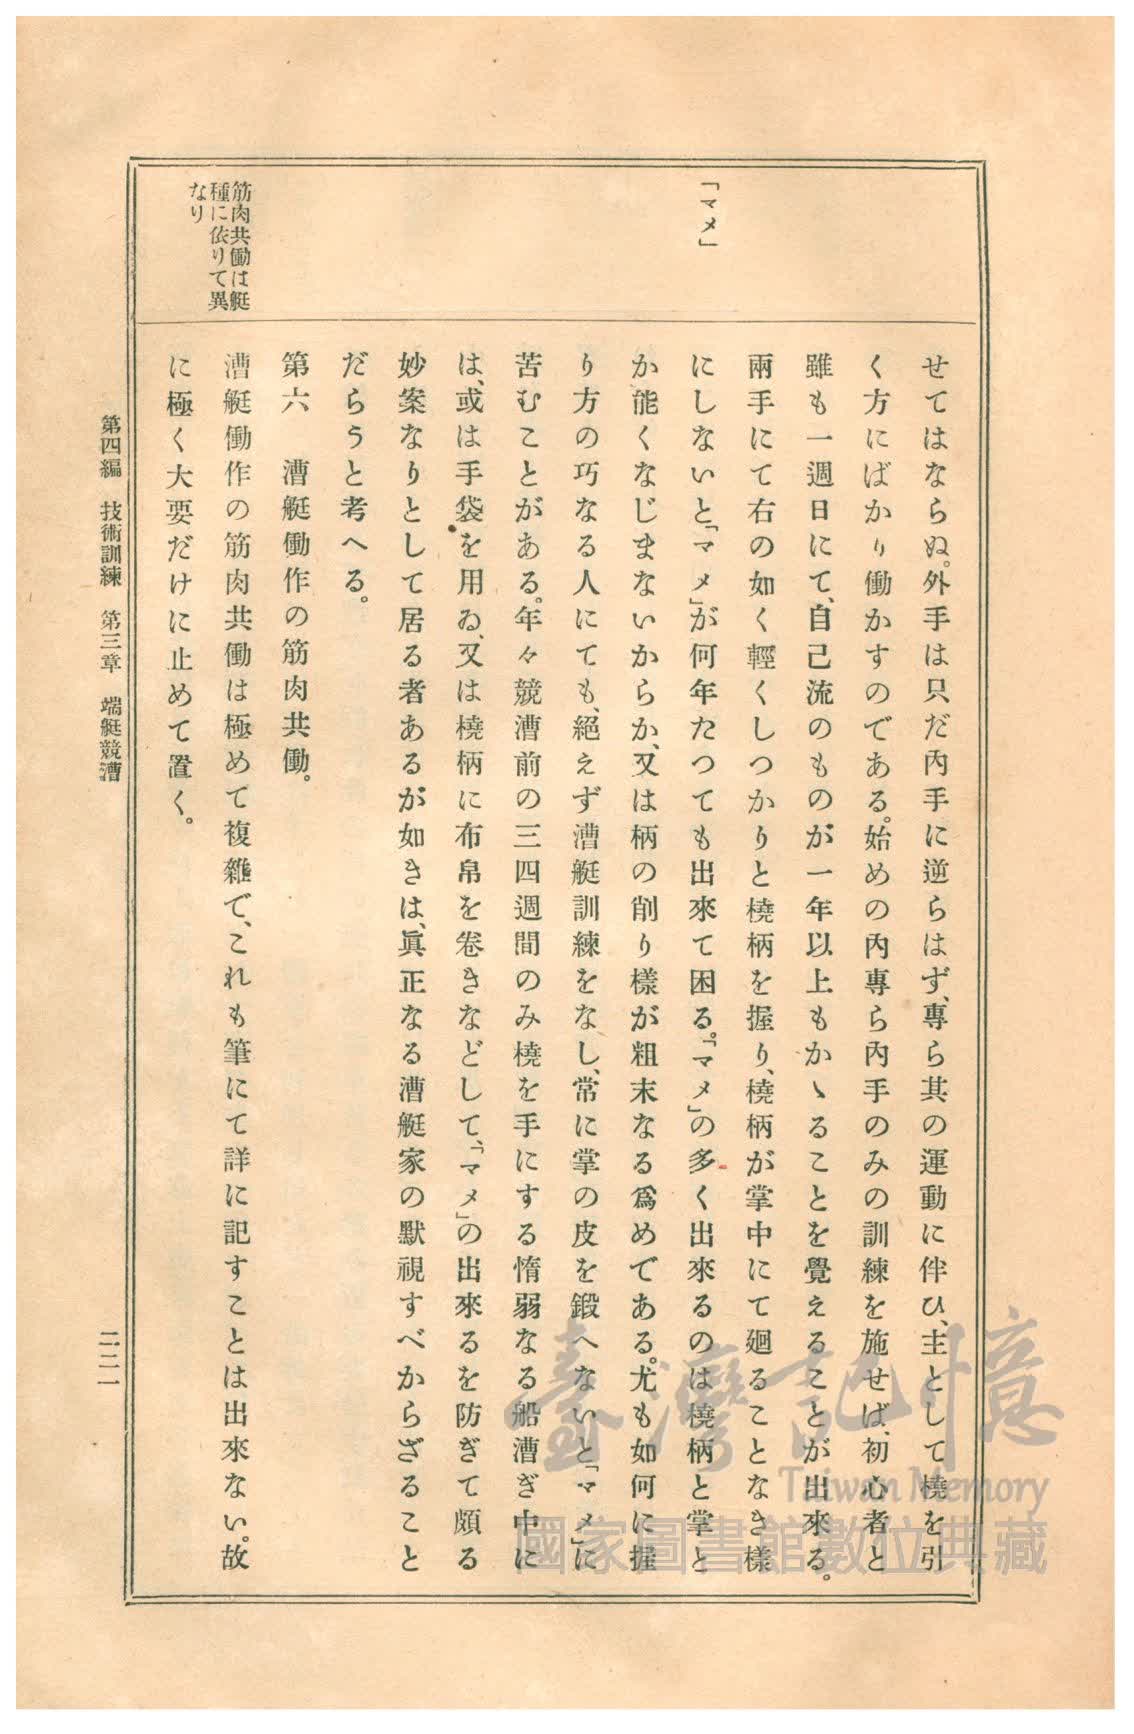 「マメ」
筋肉共働は艇
種に依りて異
なり
せてはならぬ。外手は只だ內手に逆らはず、專ら其の運動に伴ひ、主として橈を引
く方にばかり働かすのである。始めの內專ら內手のみの訓練を施せば、初心者と
雖も一週日にて、自己流のものが一年以上もかゝることを覺えることが出來る。
兩手にて右の如く輕くしつかりと橈柄を握り、橈柄が掌中にて廻ることなき樣
にしないと「マメ」が何年たつても出來て困る。「マメ」の多く出來るのは橈柄と掌と
か能くなじまないからか、又は柄の削り樣が粗末なる爲めである。尤も如何に握
り方の巧なる人にても、絕えず漕艇訓練をなし、常に掌の皮を鍛へないと「マメ」に
苦むことがある。年々競漕前の三四週間のみ橈を手にする惰弱なる船漕ぎ中に
は、或は手袋を用ゐ、又は橈柄に布帛を卷きなどして、「マメ」の出來るを防ぎて頗る
妙案なりとして居る者あるが如きは、眞正なる漕艇家の默視すべからざること
だらうと考へる。
第六　漕艇働作の筋肉共働。
漕艇働作の筋肉共働は極めて複雜で、これも筆にて詳に記すことは出來ない。故
に極く大要だけに止めて置く。
第四編　技術訓練　第三章　端艇競漕
二二一
臺灣記憶
Taiwan Memory
國家圖書館數位典藏